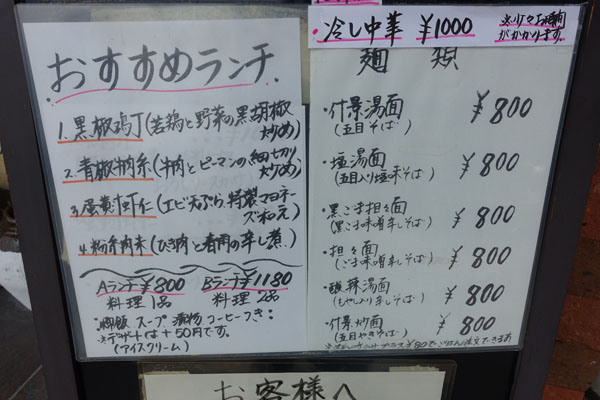 おすすめランチ
1.黒椒鶏丁(若鶏と野菜の黒胡椒
炒め)
2.青椒牛肉糸(牛肉とピーマンの細切り
炒め)
3.蛋黄汁下仁(エビ天ぷら特製マヨネー
ズ和え)
4.粉糸肉末(ひき肉と春雨の辛し煮)
Aランチ¥800 Bランチ¥1180
料理1品 料理2品
・御飯 スープ 漬物 コーヒーつき:
※デザートは+50円です。
(アイスクリーム)
冷し中華 ¥1000
※少々お時間
がかかります。
麺類
・什景湯面 ¥800
(五目そば)
・塩湯面 ¥800
(五目入り塩味そば)
・黒ごま担々面 ¥800
(黒ごま味噌辛しそば)
・担々面 ¥800
(ごま味噌辛しそば)
・酸辣湯面 ¥800
(もやし入り辛しそば)
・什景炒面 ¥800
(五目やきそば)
プラス¥80でごはん注文できます
お客様へ